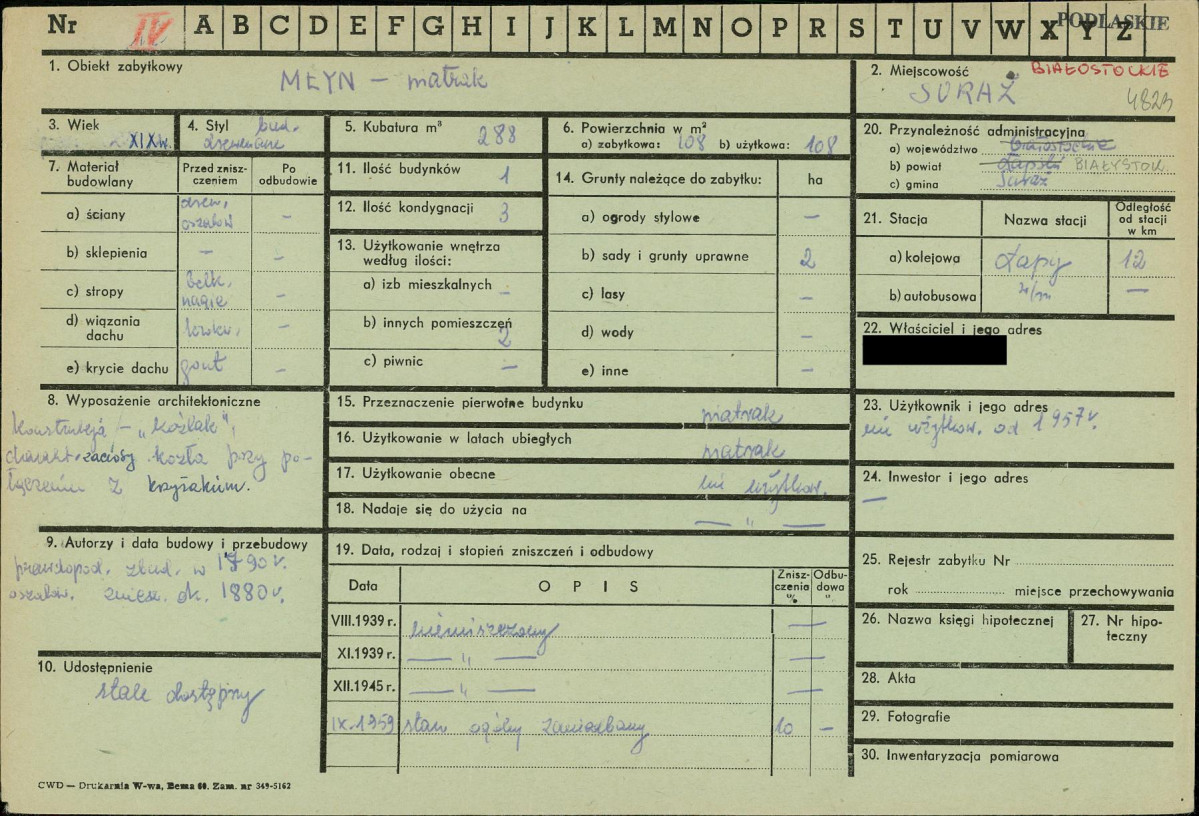 Nr IV A B C D E F G H I J K L M N O P R S T U V W X Y Z
PODLASKIE
1. Obiekt zabytkowy
MŁYN – wiatrak
2. Miejscowość
BIAŁOSTOCKIE
SURAŻ
4823
3. Wiek
XIXw.
4. Styl bud.
drewniane
5. Kubatura m³
288
6. Powierzchnia w m²
a) zabytkowa: 108 b) użytkowa: 108
7. Materiał budowlany
Przed zniszczeniem
Po odbudowie
a) ściany
drew, oszalow
–
b) sklepienia
–
–
c) stropy
belk. nagie
–
d) wiązania dachu
–
e) krycie dachu
gont
–
8. Wyposażenie architektoniczne
Konstrukcja – „Koźlak",
charakt. zaciosy kozła przy po-
łączeniu z krzyżakiem.
9. Autorzy i data budowy i przebudowy
prawdopod. zbud. w 1790 r.
oszalow. ok. 1880 r.
10. Udostępnienie
stale dostępny
CWD — Drukarnia W-wa, Bema 60. Zam. nr 349-5162
11. Ilość budynków
1
12. Ilość kondygnacji
3
13. Użytkowanie wnętrza
według ilości:
a) izb mieszkalnych
–
b) innych pomieszczeń
2
c) piwnic
–
14. Grunty należące do zabytku:
ha
a) ogrody stylowe
–
b) sady i grunty uprawne
2
c) lasy
–
d) wody
–
e) inne
–
15. Przeznaczenie pierwotne budynku
wiatrak
16. Użytkowanie w latach ubiegłych
wiatrak
17. Użytkowanie obecne
nie użytkow.
18. Nadaje się do użycia na
— „ —
19. Data, rodzaj i stopień zniszczeń i odbudowy
Data
OPIS
Zniszczenia %
Odbudowa %
VIII.1939 r.
niezniszczony
—
XI.1939 r.
— „ —
—
XII.1945 r.
— „ —
—
IX.1959
stan ogólny zaniedbany
10
–
20. Przynależność administracyjna
a) województwo
białostockie
b) powiat
Łapski BIAŁYSTOK
c) gmina
Suraż
21. Stacja
Nazwa stacji
Odległość od stacji w km
a) kolejowa
Łapy
12
b) autobusowa
—
22. Właściciel i jego adres
23. Użytkownik i jego adres
nie użytkow. od 1957 r.
24. Inwestor i jego adres
—
25. Rejestr zabytku Nr
rok miejsce przechowywania
26. Nazwa księgi hipotecznej
27. Nr hipoteczny
28. Akta
29. Fotografie
30. Inwentaryzacja pomiarowa